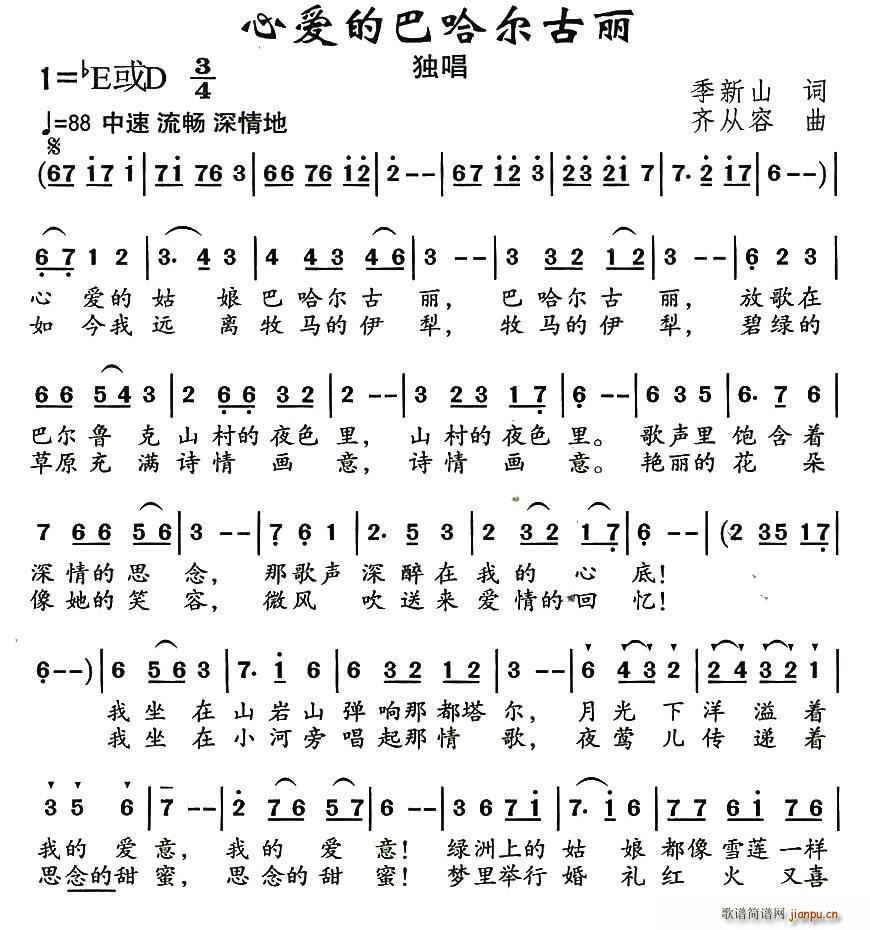 心爱的巴哈尔古丽
独唱
1=♭E或D 3/4
季新山 词
♩=88 中速 流畅 深情地
齐从容 曲
(67 i7 i | 7i 76 3 | 66 76 i2̇ | 2̇ - - | 67 i2̇ 3̇ | 2̇3̇ 2̇i 7 | 7. 2̇ i7 | 6 - - ) |
6̣ 7̣ 1 2 | 3. 4 3 | 4 43 46 | 3 - - | 3 32 12 | 3 - - | 6̣ 2 3 |
心 爱的 姑 娘 巴 哈尔 古 丽, 巴 哈尔 古 丽, 放歌在
如 今我 远 离 牧 马的 伊 犁, 牧 马的 伊 犁, 碧绿的
66 54 3 | 2 6̣6̣ 32 | 2 - - | 3 23 17̣ | 6̣ - - | 6 3 5 | 6. 7 6 |
巴尔 鲁 克 山 村的 夜色 里, 山 村的 夜色 里。 歌声里 饱 含着
草原 充 满 诗 情 画 意, 诗 情 画 意。 艳丽的 花 朵
7 66 56 | 3 - - | 7̣ 6̣ 1 | 2. 5 3 | 2 32 17̣ | 6̣ - - | (2 35 17̣ |
深 情的 思 念, 那歌声 深 醉在 我 的 心 底!
像 她的 笑 容, 微风 吹 送来 爱 情的 回 忆!
6̣ - - ) | 6 56 3 | 7. i 6 | 6 32 12 | 3 - - | 6 43 2 | 24 32 1 |
我 坐 在 山 岩山 弹 响那 都塔 尔, 月 光 下 洋 溢 着
我 坐 在 小 河旁 唱 起那 情 歌, 夜 莺 儿 传 递 着
3 5 6 | 7 - - | 2̇ 76 57 | 6 - - | 3 6 7i | 7. i 6 | 77 6i 76 |
我的 爱 意, 我 的 爱 意! 绿洲上的 姑 娘 都像 雪莲 一样
思念的甜 蜜, 思 念的 甜 蜜! 梦里举行 婚 礼 红 火 又喜
歌谱简谱网 jianpu.cn